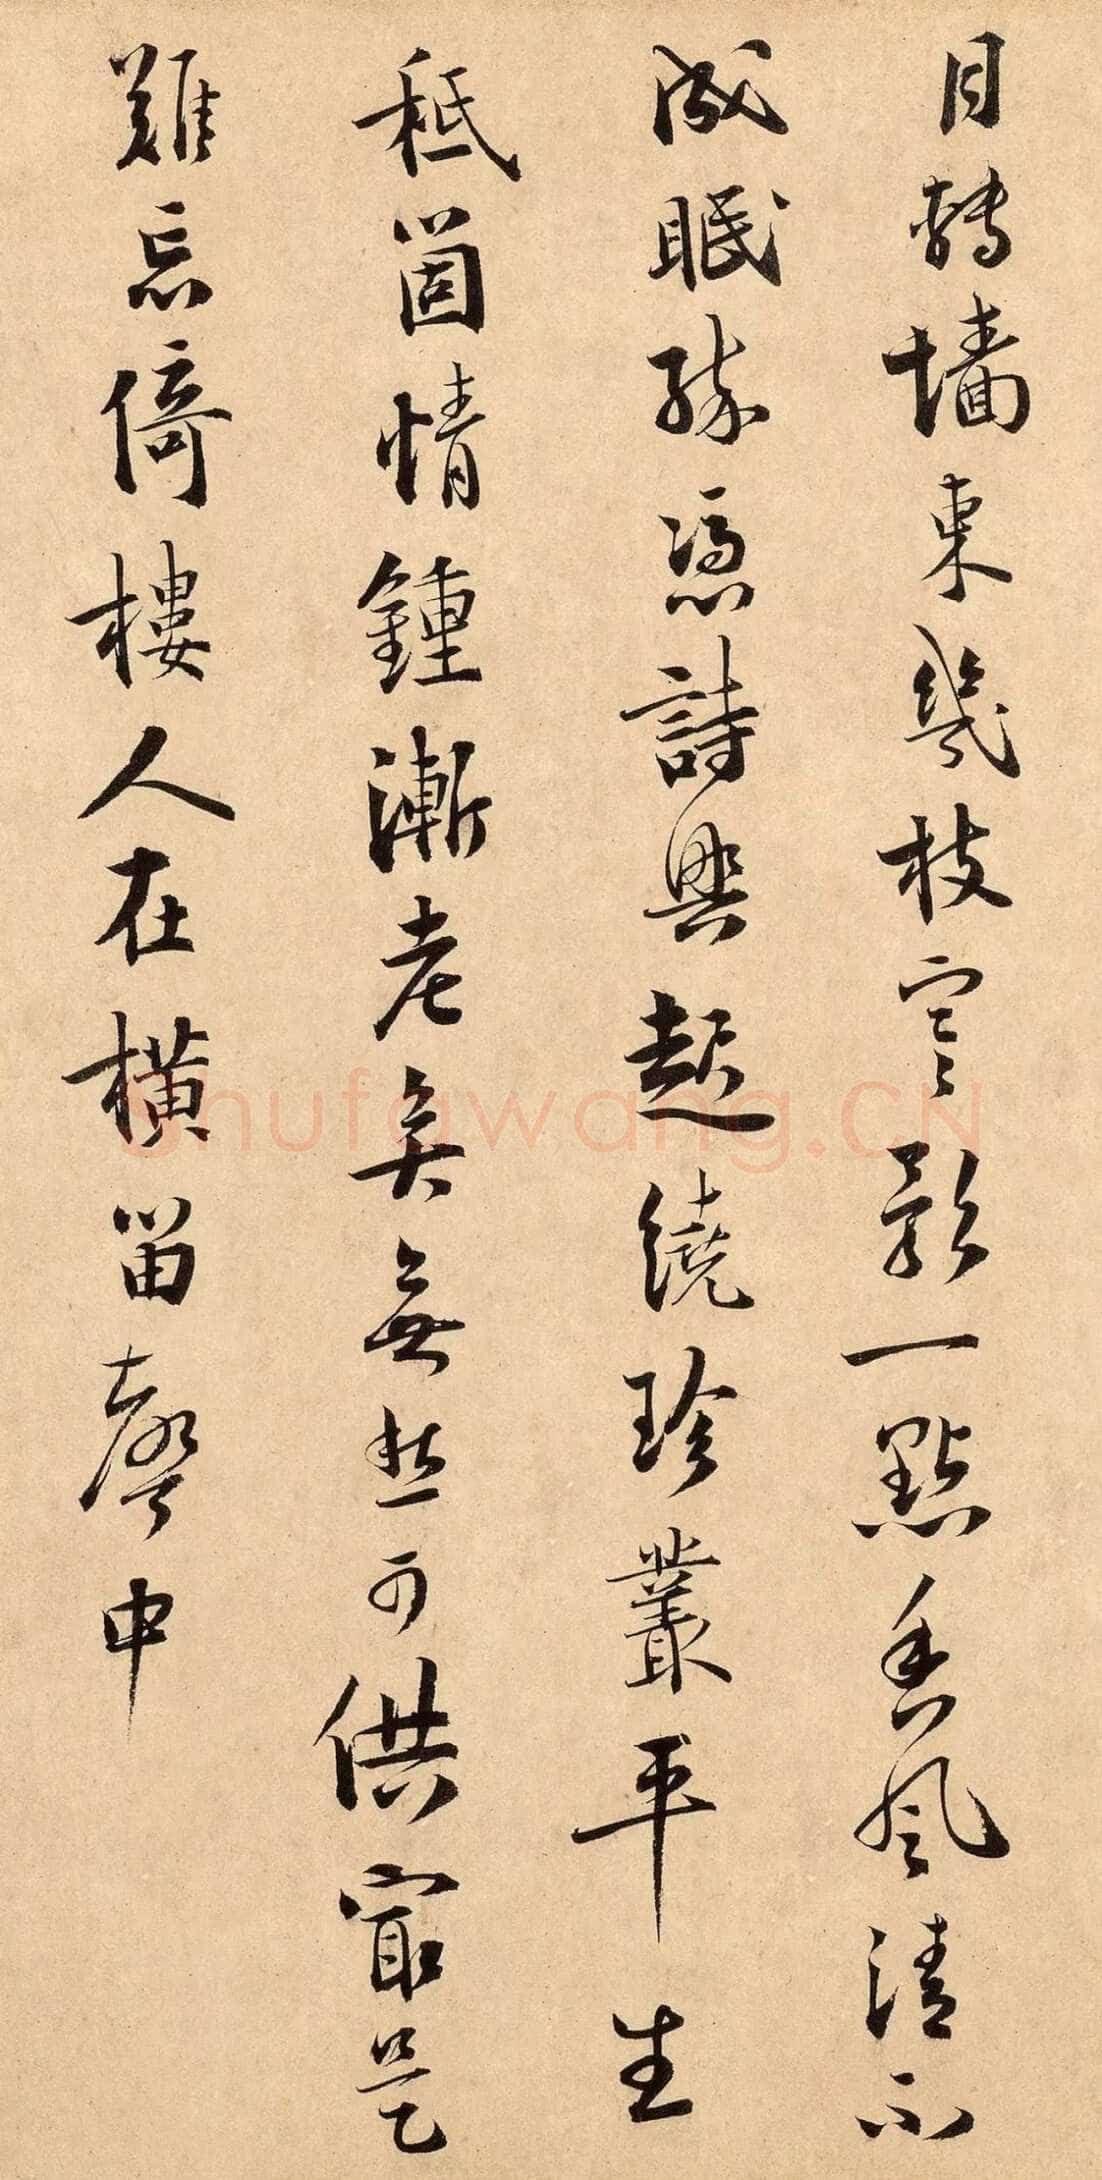 月轉墻東幾枝寒影一點香風清不
成眠醉憑詩興起繞珍叢平生
秪箇情鍾漸老矣無愁可供㝡是
難忘倚樓人在橫笛聲中
shufawang.CN